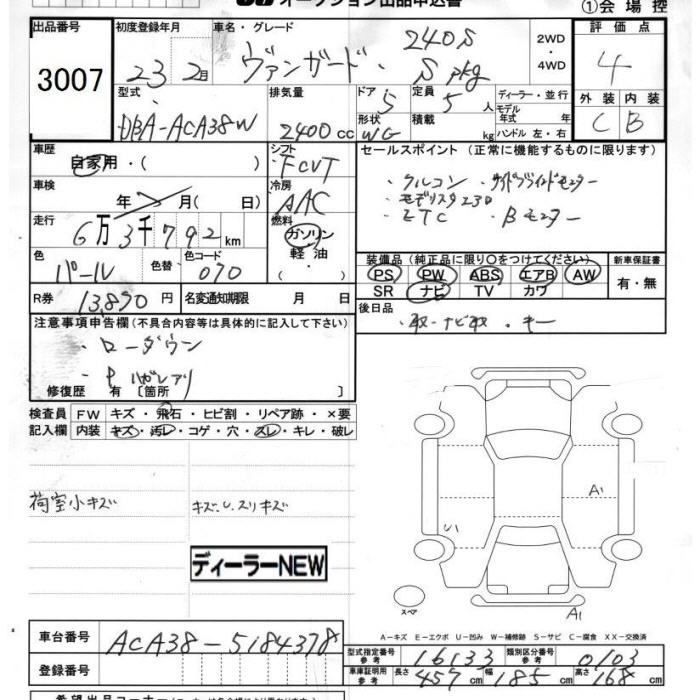 オークション出品申込書
①会場控
出品番号
3007
初度登録年月
23 2月
車名・グレード
ヴァンガード 240S S pkg
2WD
・
4WD
評価点
4
外装 内装
C B
型式
DBA-ACA38W
排気量
2400 cc
ドア 5
形状 WG
定員 5 人
積載 kg
ディーラー・並行
モデル年式 年
ハンドル 左・右
車歴
自家用・( )
シフト
FCVT
車検
年 月( 日)
冷房
AAC
走行
6万3千792km
燃料
ガソリン
軽油
・( )
色
パール
色替
色コード
070
R券 13,890 円
名変通知期限 月 日
セールスポイント (正常に機能するものに限ります)
・クルコン ・サイドブラインドモニター
・モデリスタ230
・ETC ・Bモニター
装備品(純正品に限り○をつけてください)
PS PW ABS エアB AW
SR ナビ TV カワ
新車保証書
有・無
後日品
・取・ナビ取 ・キー
注意事項申告欄(不具合内容等は具体的に記入して下さい)
・ローダウン
修復歴 有 〔箇所 〕
検査員 FW キズ・飛石・ヒビ割・リペア跡・×要
記入欄 内装 キズ・汚レ・コゲ・穴・スレ・キレ・破レ
荷室小キズ
キズ、U、スリキズ
ディーラーNEW
A1
U1
スペア
A1
A-キズ E-エクボ U-凹み W-補修跡 S-サビ C-腐食 XX-交換済
車台番号
ACA38-5184378
登録番号
型式指定番号 参考 16133
類別区分番号 参考 0103
車庫証明用 参考 長さ 457 cm 幅 185 cm 高さ 168 cm